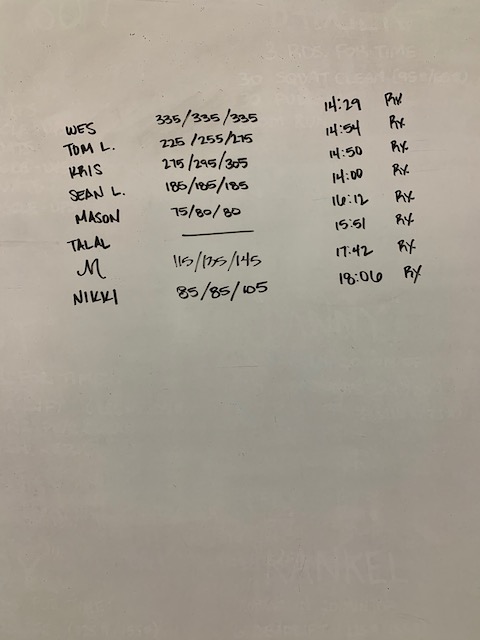 3 RDS FOR TIME
WES 335/335/335 14:29 Rx
TOM L. 225/255/275 14:54 Rx
KRIS 275/295/305 14:50 Rx
SEAN L. 185/185/185 14:00 Rx
MASON 75/80/80 16:12 Rx
TALAL 15:51 Rx
M 115/135/145 17:42 Rx
NIKKI 85/85/105 18:06 Rx
RANKEL